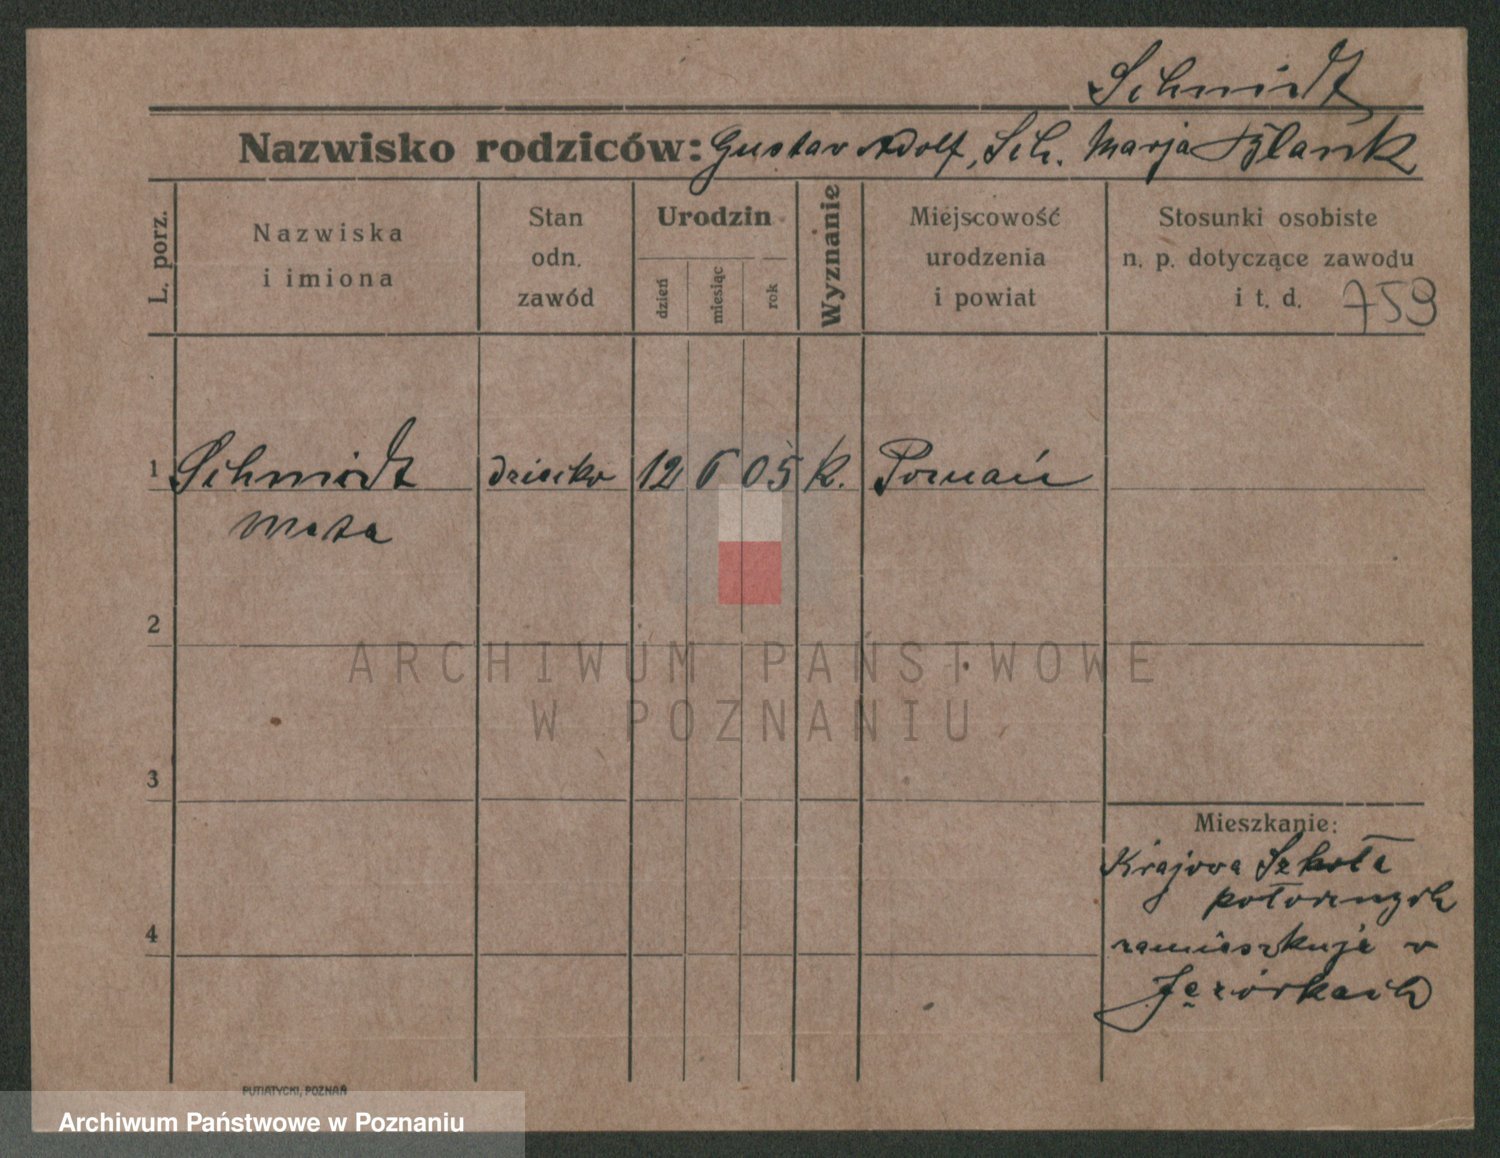 Schmidt
Nazwisko rodziców: Gustav Adolf, Sch. Marja Blank
L. porz.
Nazwiska
i imiona
Stan
odn.
zawód
Urodzin
dzień
miesiąc
rok
Wyznanie
Miejscowość
urodzenia
i powiat
Stosunki osobiste
n. p. dotyczące zawodu
i t. d.
759
1 Schmidt dziecko 12 6 05 k. Poznań
2
ARCHIWUM PAŃSTWOWE
W POZNANIU
3
Mieszkanie:
Krajowa Szkoła
położnych
4
zamieszkuje w
PUTIATYCKI, POZNAŃ
Archiwum Państwowe w Poznaniu